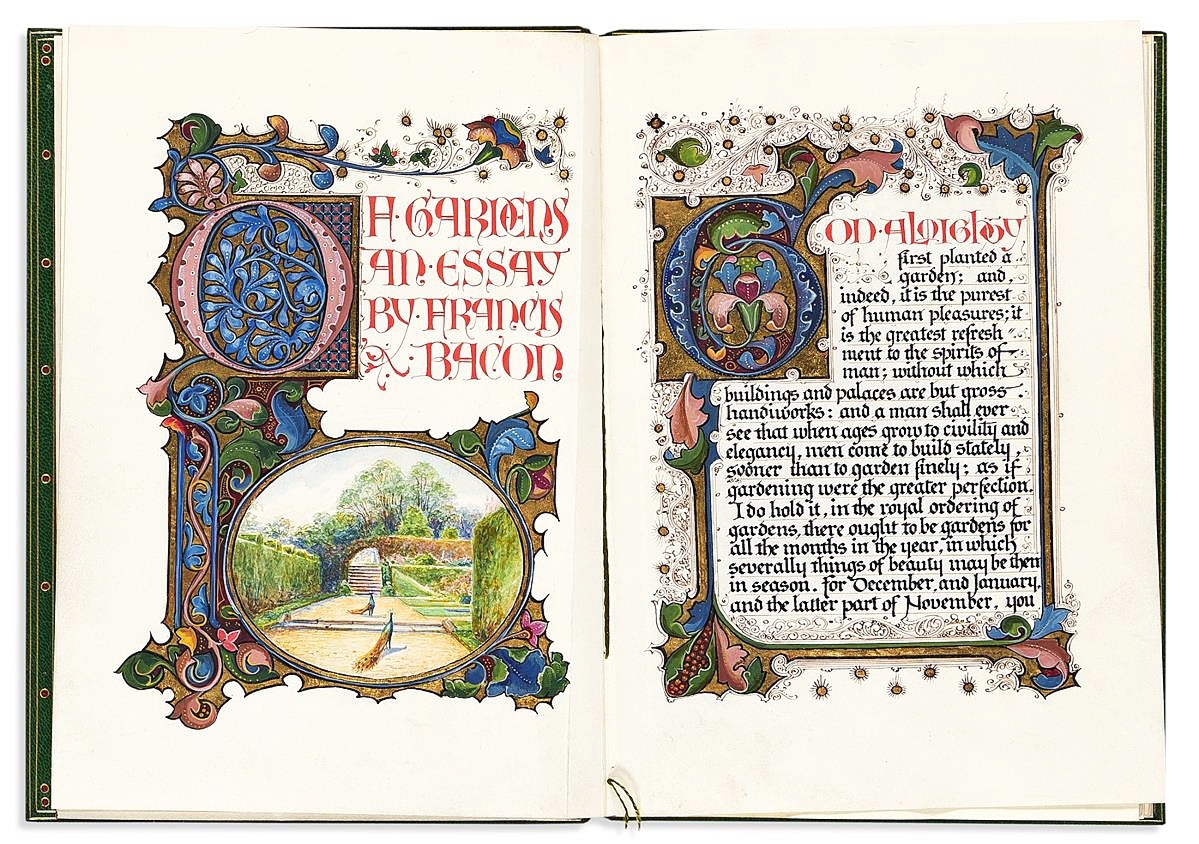 OF·GARDENS
AN·ESSAY
BY·FRANCIS
·BACON
GOD·ALMIGHTY
first planted a
garden; and,
indeed, it is the purest
of human pleasures; it
is the greatest refresh
ment to the spirits of
man; without which
buildings and palaces are but gross
handiworks: and a man shall ever
see that when ages grow to civility and
elegancy, men come to build stately,
sooner than to garden finely; as if
gardening were the greater perfection.
I do hold it, in the royal ordering of
gardens, there ought to be gardens for
all the months in the year, in which
severally things of beauty may be then
in season. for December, and January,
and the latter part of November, you